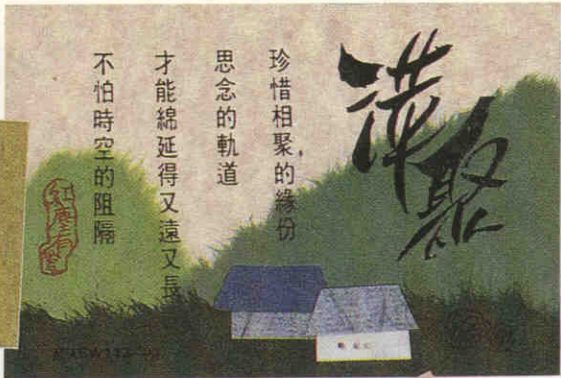 萍聚
珍惜相聚的緣份
思念的軌道
才能綿延得又遠又長
不怕時空的阻隔